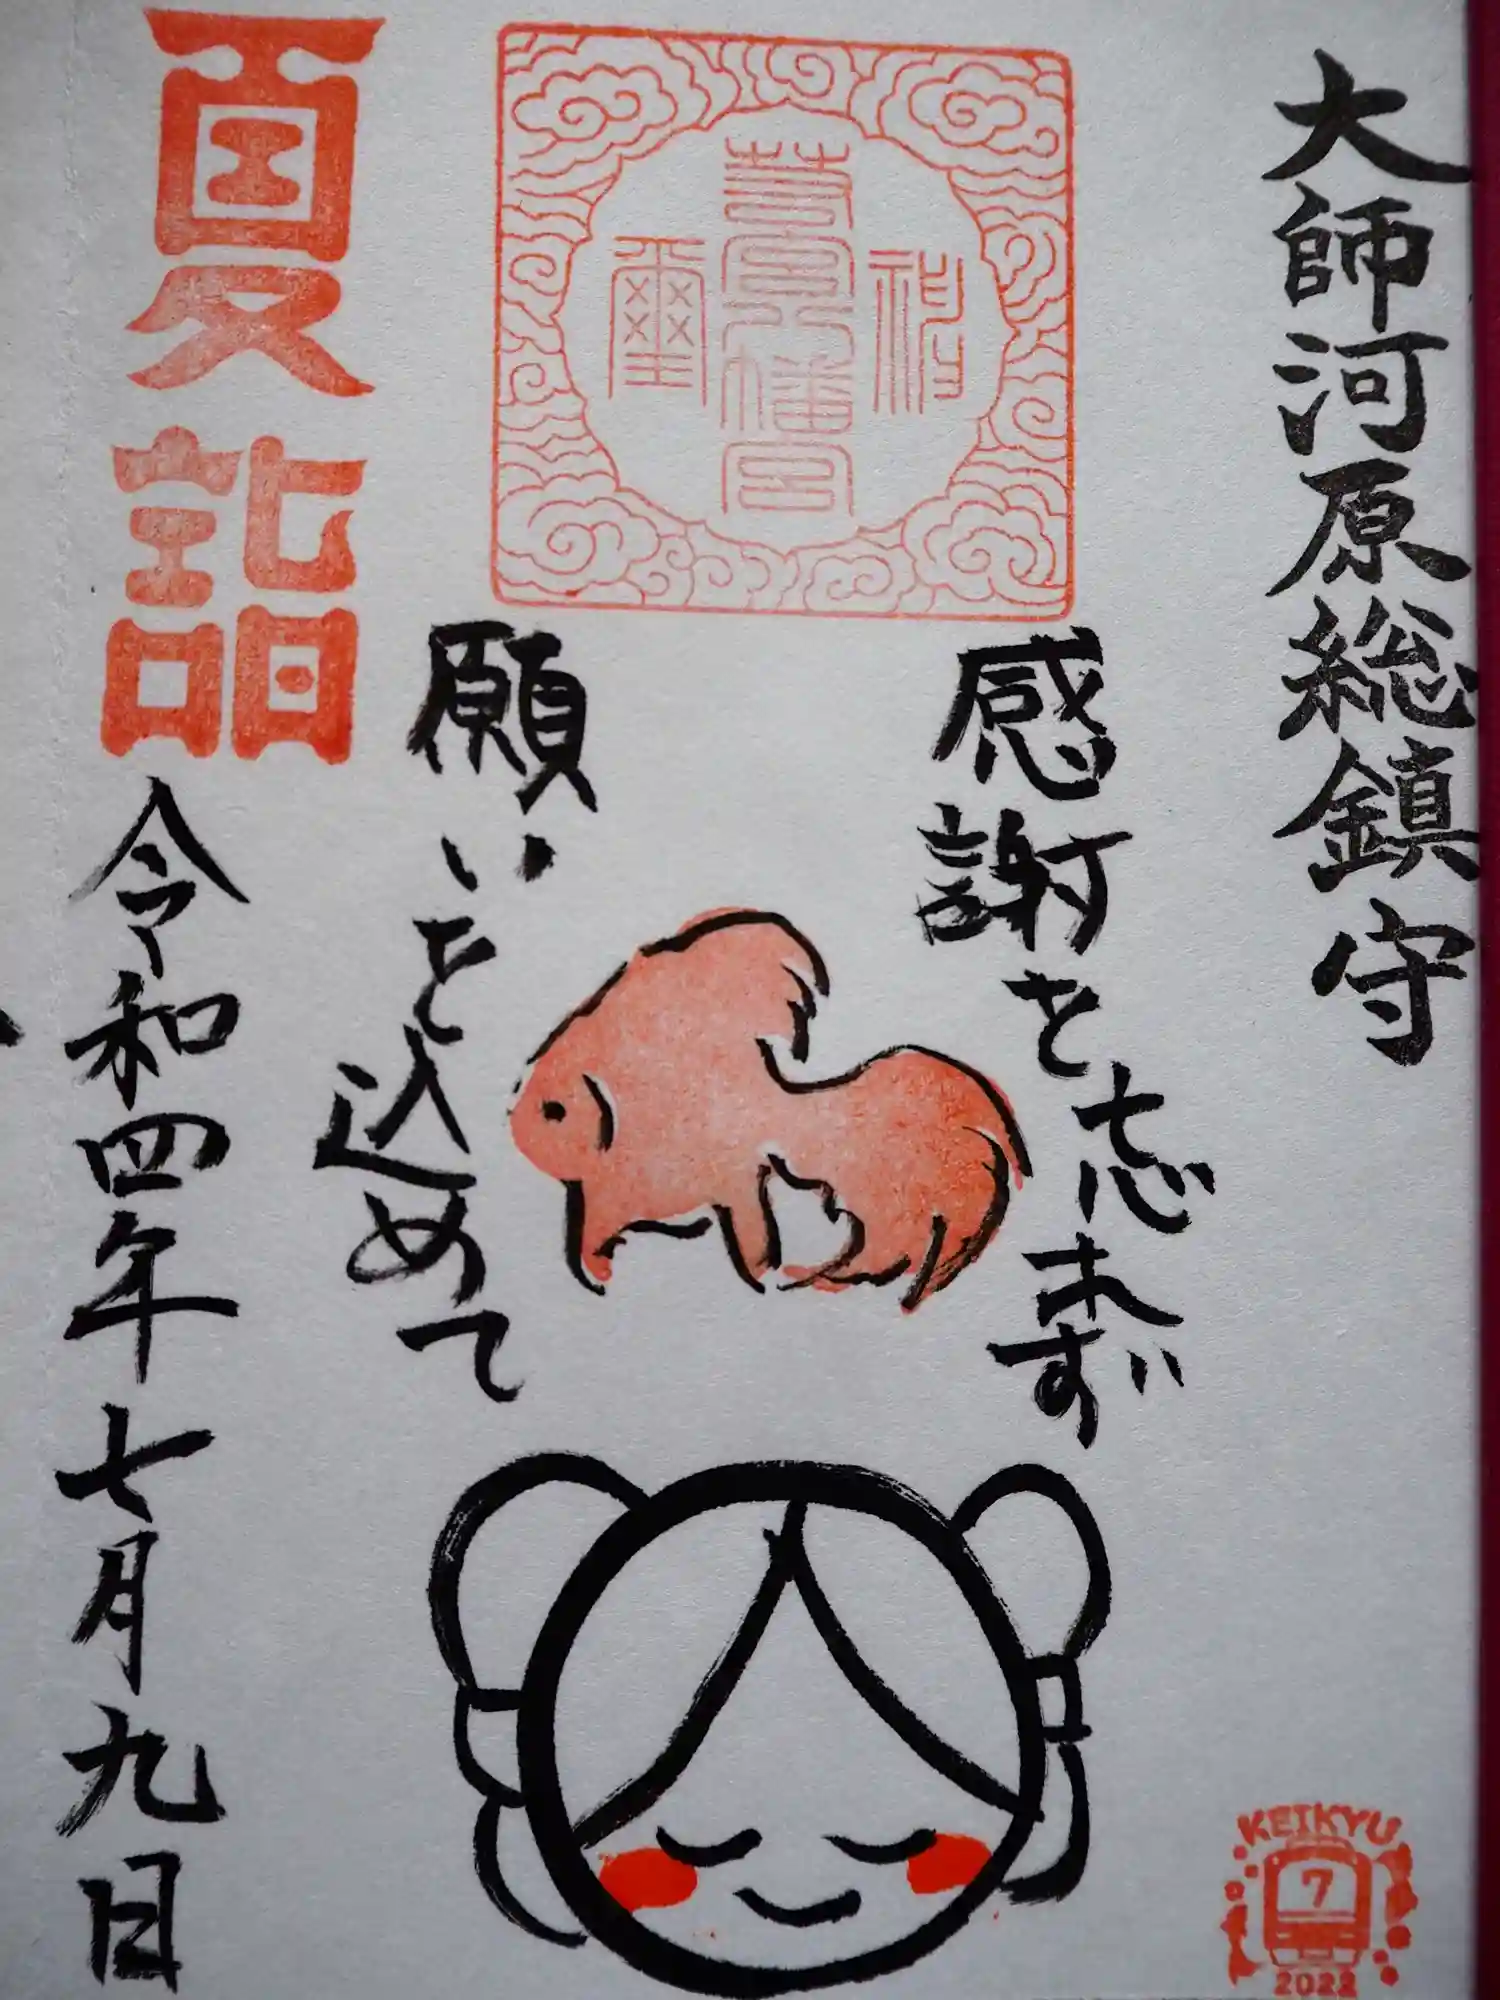 大師河原総鎮守
感謝を忘れず
願いを込めて
夏詣
令和四年七月九日
KEIKYU
7
2022